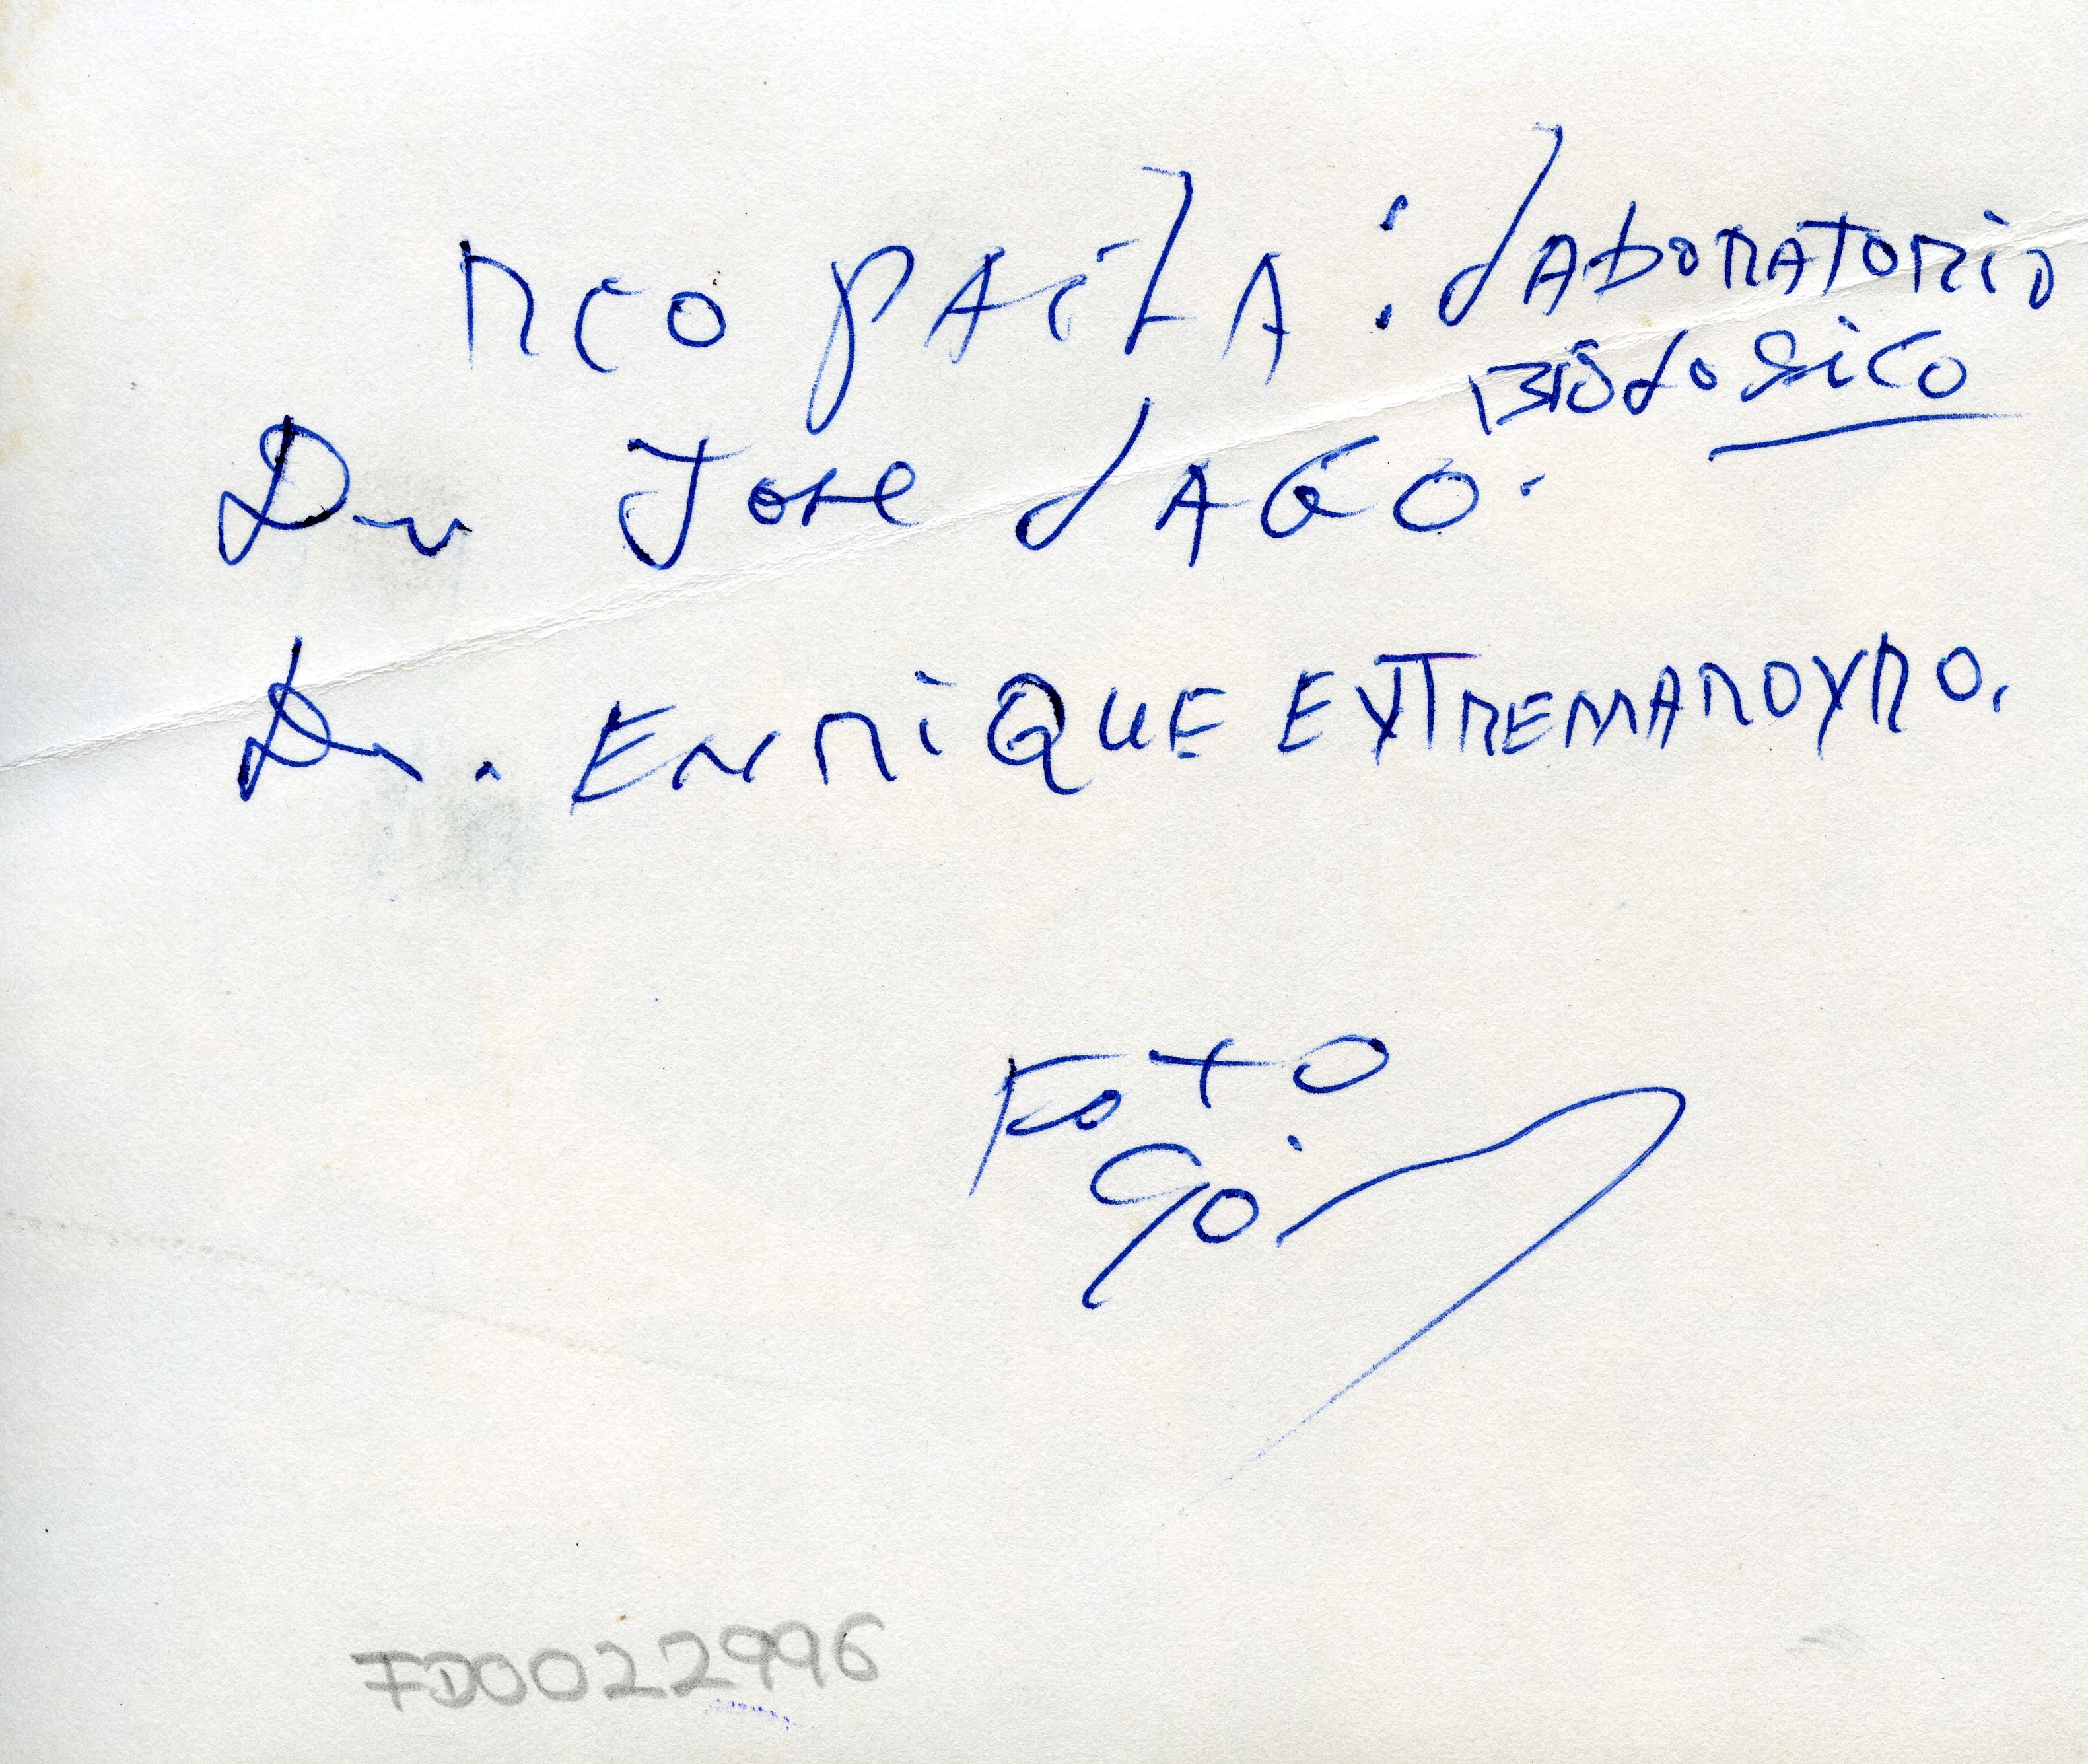 Rio PAiLA : LABORATORIO
BIOLOGICO
Dr Jose LAGO.
Dr. ENRIQUE EXTREMADOYRO.
Foto
FD0022996